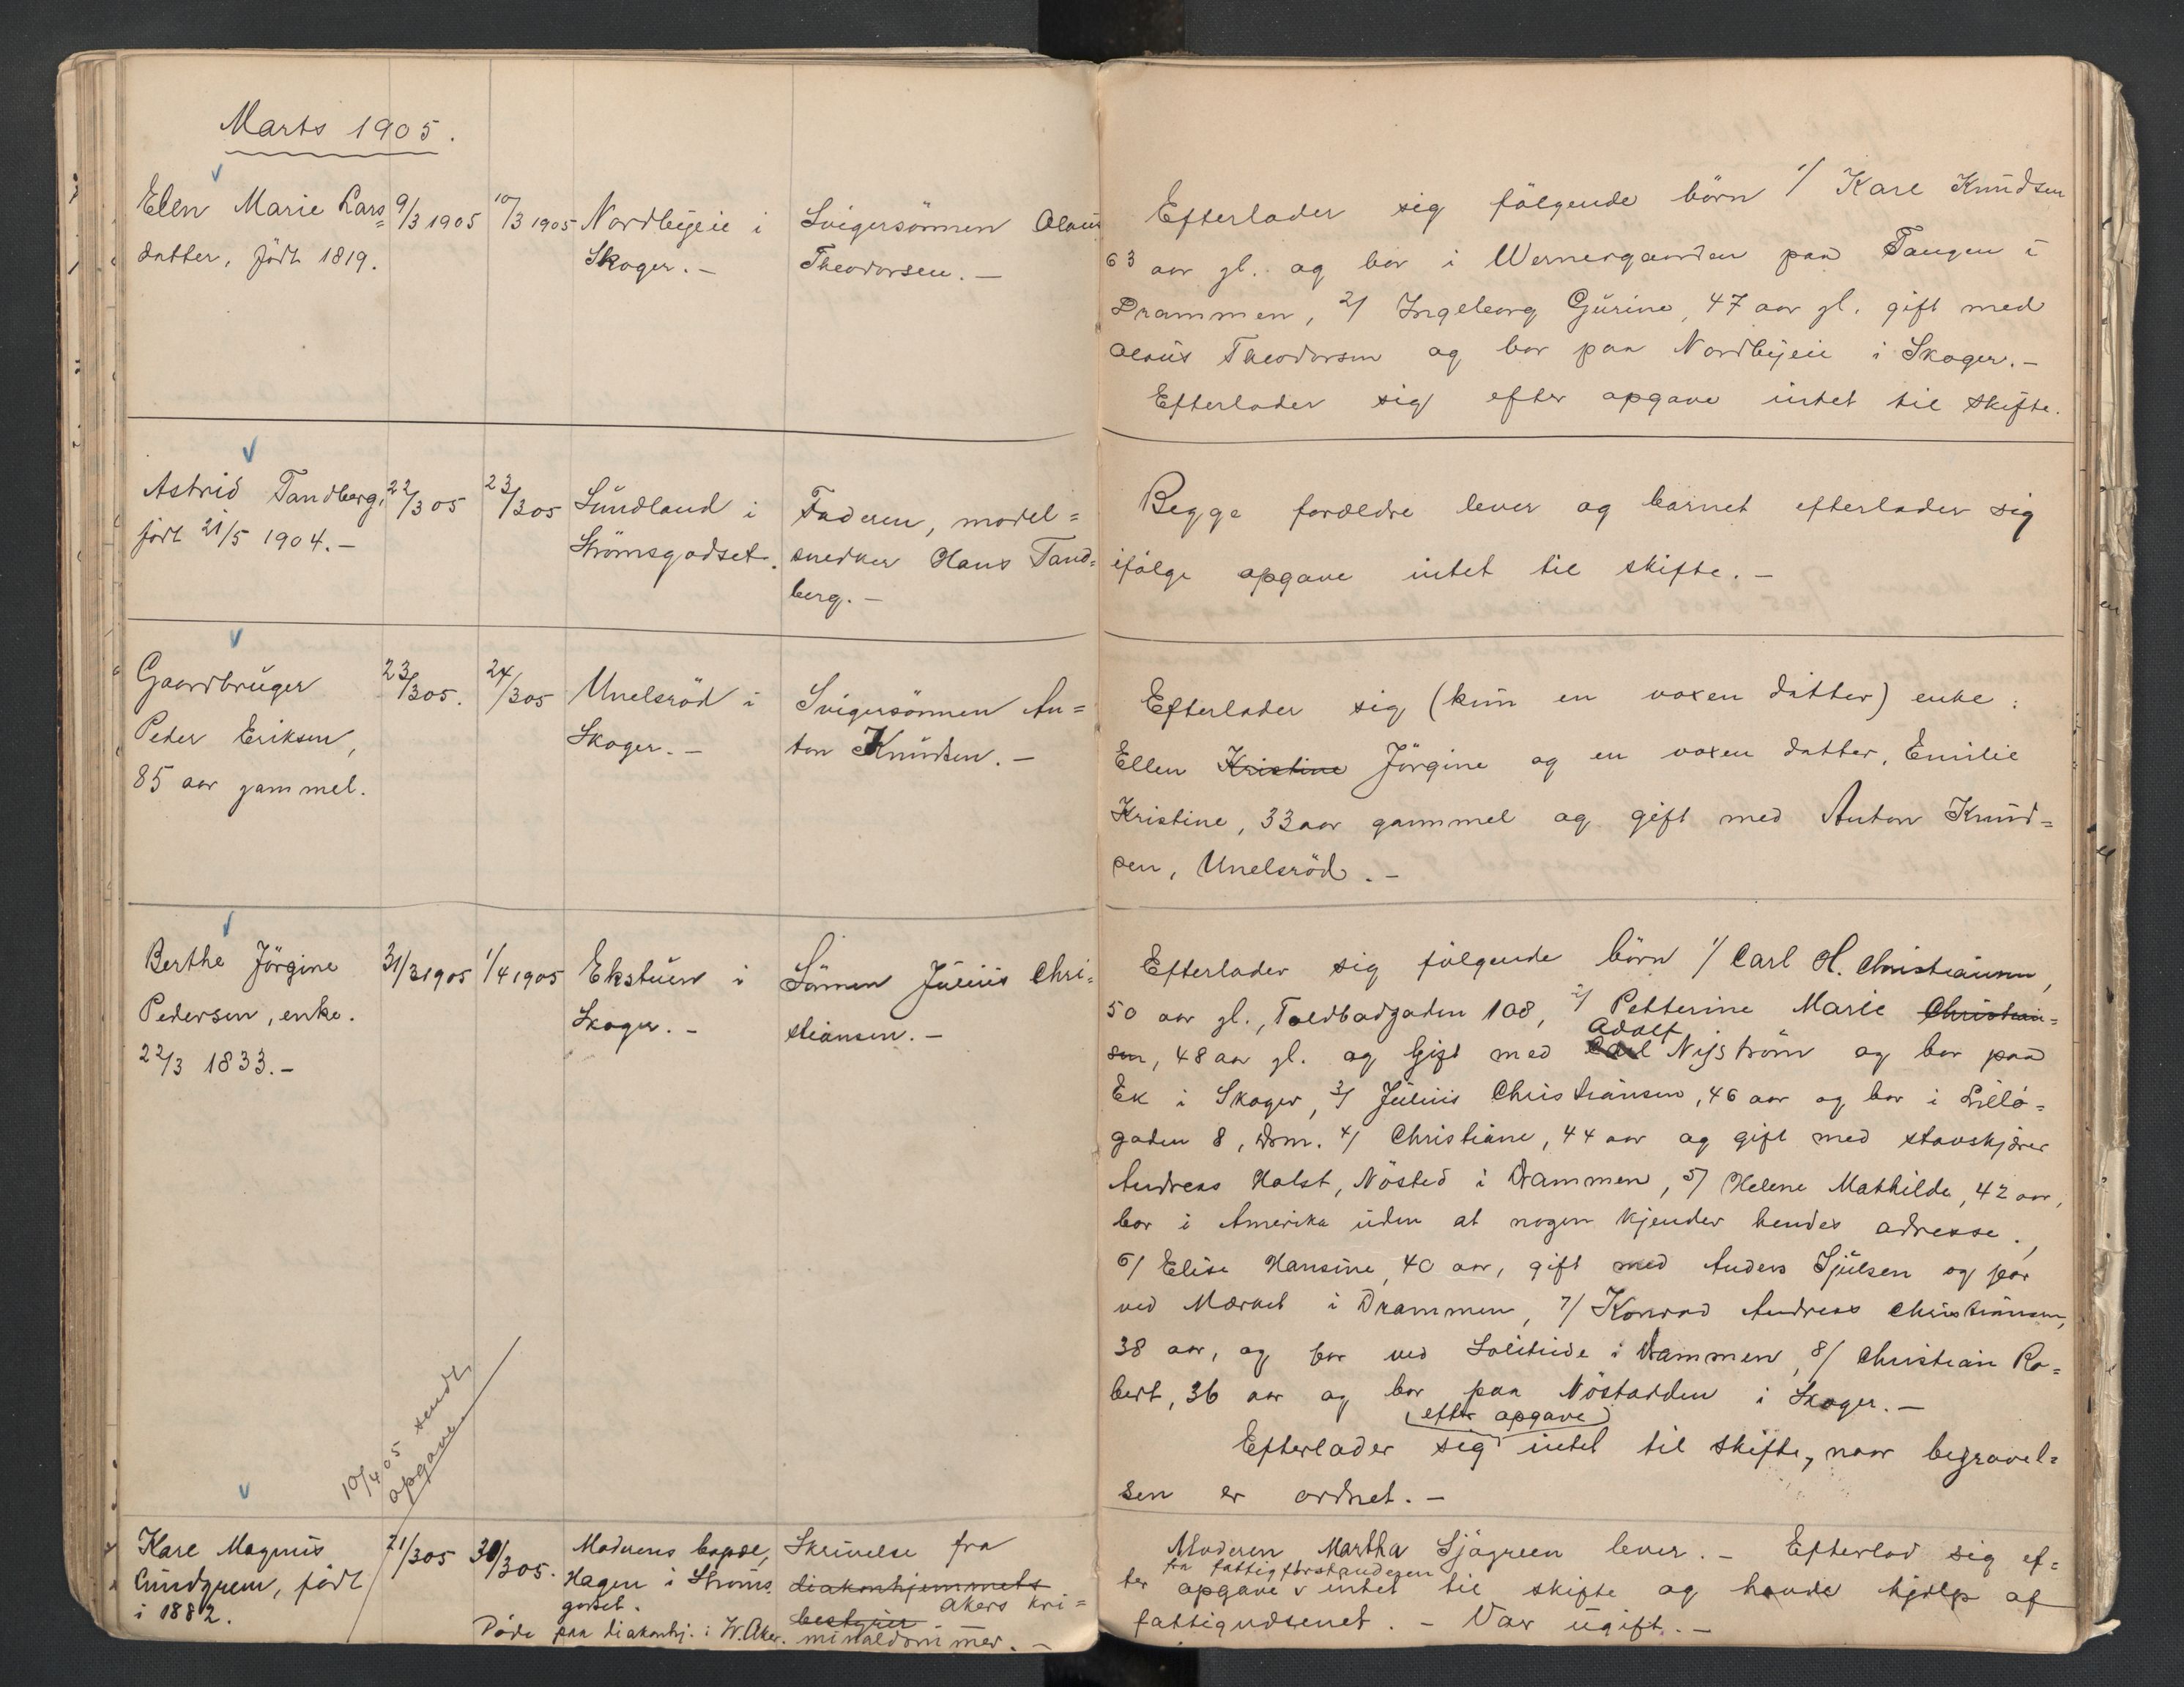 Marts 1905.
Elen Marie Lars=
datter, født 1819.
9/3 1905
10/3 1905
Nordbyeie i
Skoger. -
Svigersönnen Olaus
Theodorsen. -
Efterlader sig fölgende börn 1/ Karl Knudsen
63 aar gl. og bor i Wernergaarden paa Tangen i
Drammen, 2/ Ingeborg Gurine, 47 aar gl. gift med
Olaus Theodorsen og bor paa Nordbyeie i Skoger. -
Efterlader sig efter opgave intet til skifte.
Astrid Tandberg,
født 21/5 1904. -
22/3 05
23/3 05
Sundland i
Strömsgodset.
Faderen, model=
snedker Hans Tand=
berg. -
Begge forældre lever og barnet efterlader sig
ifölge opgave intet til skifte. -
Gaardbruger
Peder Eriksen,
85 aar gammel.
23/3 05.
24/3 05
Unelsröd i
Skoger. -
Svigersönnen An=
ton Knudsen. -
Efterlader sig (kun en voxen datter) enke:
Ellen Kristine Jörgine og en voxen datter, Emilie
Kristine, 33 aar gammel og gift med Anton Knud=
sen, Unelsröd. -
Berthe Jörgine
Pedersen, enke.
22/3 1833. -
31/3 1905
1/4 1905
Ekstuen i
Skoger. -
Sönnen Julius Chri=
stiansen. -
Efterlader sig fölgende börn 1/ Carl H. Christiansen,
50 aar gl., Toldbodgaden 108, 2/ Petterine Marie Christian=
Adolf
sen, 48 aar gl. og Gift med Carl Nyström og bor paa
Ek i Skoger, 3/ Julius Christiansen, 46 aar og bor i Lillö=
gaden 8, Drm. 4/ Christiane, 44 aar og gift med stavskjærer
Andreas Holst, Nösted i Drammen, 5/ Helene Mathilde, 42 aar,
bor i Amerika uden at nogen kjender hendes adresse.,
6/ Elise Hansine, 40 aar, gift med Anders Sjulsen og bor
ved Mærket i Drammen, 7/ Konrad Andreas Christiansen,
38 aar, og bor ved Solitude i Drammen, 8/ Christian Ro=
bert, 36 aar og bor paa Nöstodden i Skoger. -
(efter opgave)
Efterlader sig intet til skifte, naar begravel=
sen er ordnet. -
10/4 05 sendt
opgave
Karl Magnus
Lundgreen, født
i 1882.
21/3 05
30/3 05.
Moderens bopæl,
Hagen i Ströms
godset.
Döde paa diakonhj. i V. Aker.
Skrivelse fra
diakonhjemmets
bestyrer akers kri=
minaldommer. -
Moderen Martha Sjögreen lever. - Efterlod sig ef=
fra fattigforstanderen
ter opgave v intet til skifte og havde hjælp af
fattigvæsenet. - Var ugift. -